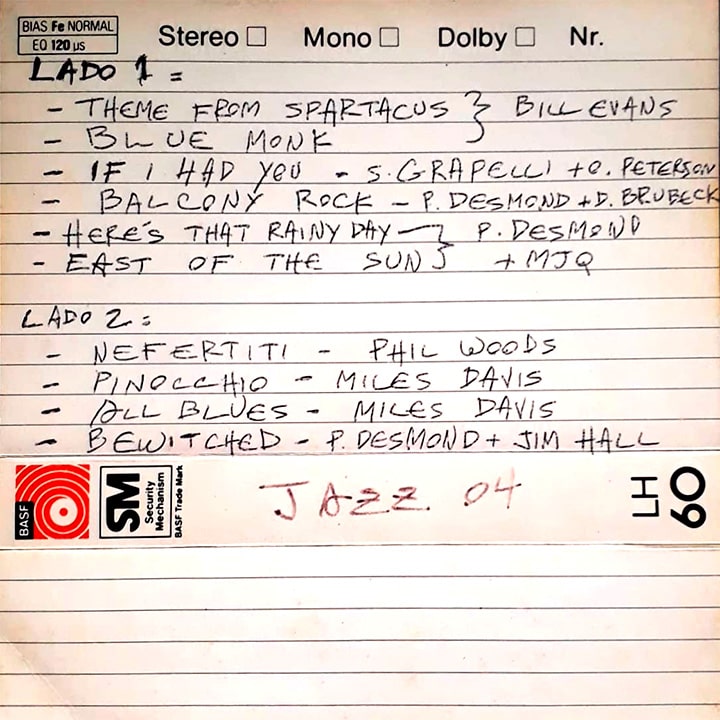 BIAS Fe NORMAL
EQ 120 µs
Stereo Mono Dolby Nr.
LADO 1 =
- THEME FROM SPARTACUS } BILL EVANS
- BLUE MONK
- IF I HAD YOU - S. GRAPELLI + O. PETERSON
- BALCONY ROCK - P. DESMOND + D. BRUBECK
- HERE'S THAT RAINY DAY - } P. DESMOND
- EAST OF THE SUN } + MJQ
LADO 2 =
- NEFERTITI - PHIL WOODS
- PINOCCHIO - MILES DAVIS
- ALL BLUES - MILES DAVIS
- BEWITCHED - P. DESMOND + JIM HALL
BASF
SM
Security
Mechanism
BASF Trade Mark
JAZZ. 04
LH
60